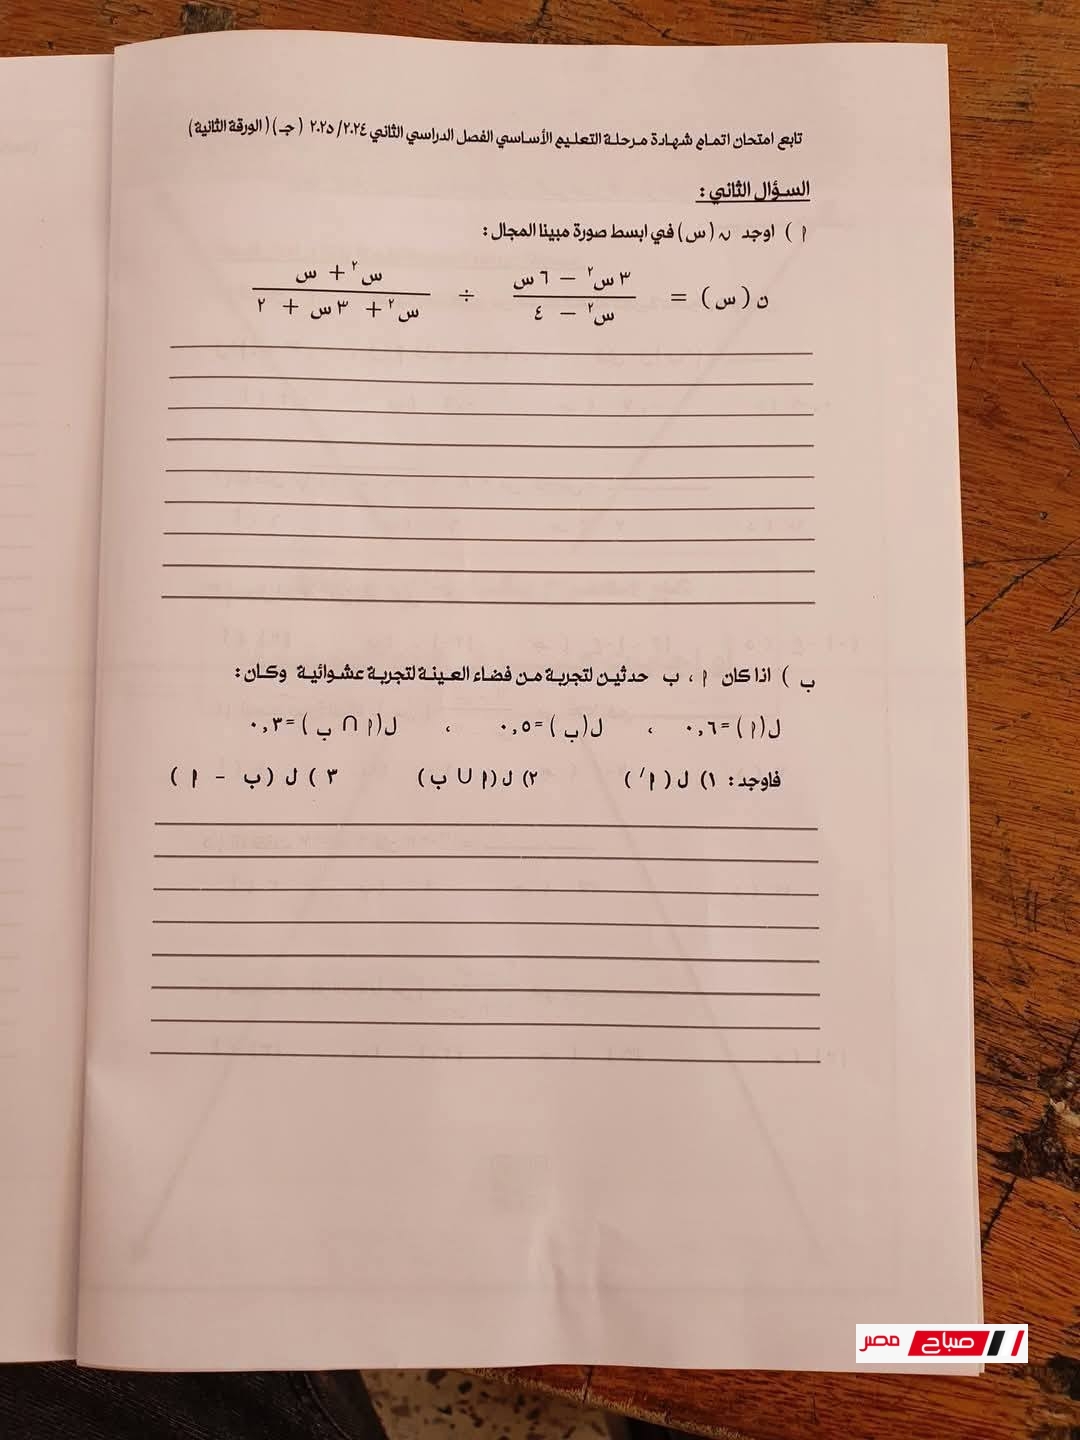 تابع امتحان اتمام شهادة مرحلة التعليم الأساسي الفصل الدراسي الثاني ٢٠٢٤/ ٢٠٢٥ ( جـ ) ( الورقة الثانية )
السؤال الثاني :
ا ) اوجد ن (س) في ابسط صورة مبينا المجال :
ن ( س ) = (٣ س² − ٦ س) / (س² − ٤) ÷ (س² + س) / (س² + ٣ س + ٢)
ب ) اذا كان ا ، ب حدثين لتجربة من فضاء العينة لتجربة عشوائية وكان :
ل( ا ) = ٠,٦ ، ل( ب ) = ٠,٥ ، ل( ا ∩ ب ) = ٠,٣
فاوجد : ١) ل ( ا/ ) ٢) ل( ا ∪ ب ) ٣ ) ل ( ب - ا )
صباح مصر